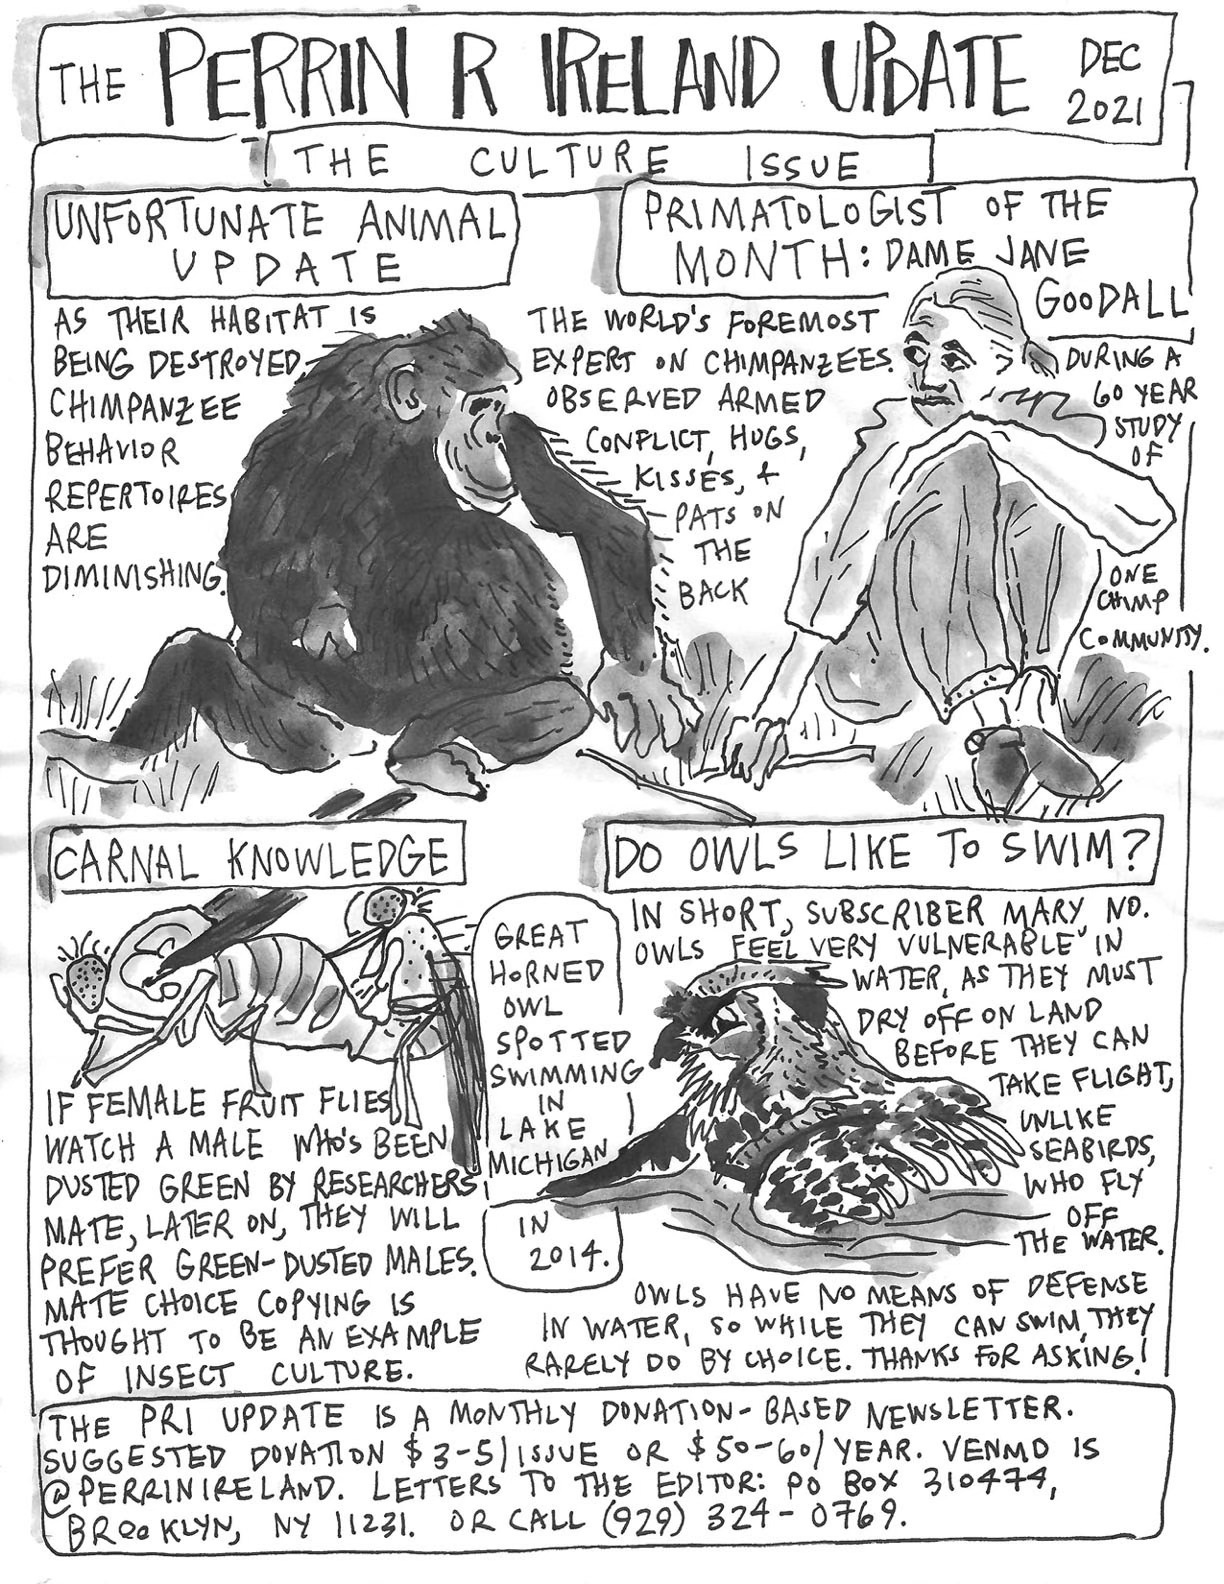 THE PERRIN R IRELAND UPDATE DEC 2021
THE CULTURE ISSUE
UNFORTUNATE ANIMAL
UPDATE
AS THEIR HABITAT IS
BEING DESTROYED,
CHIMPANZEE
BEHAVIOR
REPERTOIRES
ARE
DIMINISHING.
PRIMATOLOGIST OF THE
MONTH: DAME JANE
GOODALL
THE WORLD'S FOREMOST
EXPERT ON CHIMPANZEES.
OBSERVED ARMED
CONFLICT, HUGS,
KISSES, +
PATS ON
THE
BACK
DURING A
60 YEAR
STUDY
OF
ONE
CHIMP
COMMUNITY.
CARNAL KNOWLEDGE
IF FEMALE FRUIT FLIES
WATCH A MALE WHO'S BEEN
DUSTED GREEN BY RESEARCHERS
MATE, LATER ON, THEY WILL
PREFER GREEN-DUSTED MALES.
MATE CHOICE COPYING IS
THOUGHT TO BE AN EXAMPLE
OF INSECT CULTURE.
GREAT
HORNED
OWL
SPOTTED
SWIMMING
IN
LAKE
MICHIGAN
IN
2014.
DO OWLS LIKE TO SWIM?
IN SHORT, SUBSCRIBER MARY, NO.
OWLS FEEL VERY VULNERABLE IN
WATER, AS THEY MUST
DRY OFF ON LAND
BEFORE THEY CAN
TAKE FLIGHT,
UNLIKE
SEABIRDS,
WHO FLY
OFF
THE WATER.
OWLS HAVE NO MEANS OF DEFENSE
IN WATER, SO WHILE THEY CAN SWIM, THEY
RARELY DO BY CHOICE. THANKS FOR ASKING!
THE PRI UPDATE IS A MONTHLY DONATION-BASED NEWSLETTER.
SUGGESTED DONATION $3-5/ISSUE OR $50-60/YEAR. VENMO IS
@PERRINIRELAND. LETTERS TO THE EDITOR: PO BOX 310474,
BROOKLYN, NY 11231. OR CALL (929) 324-0769.